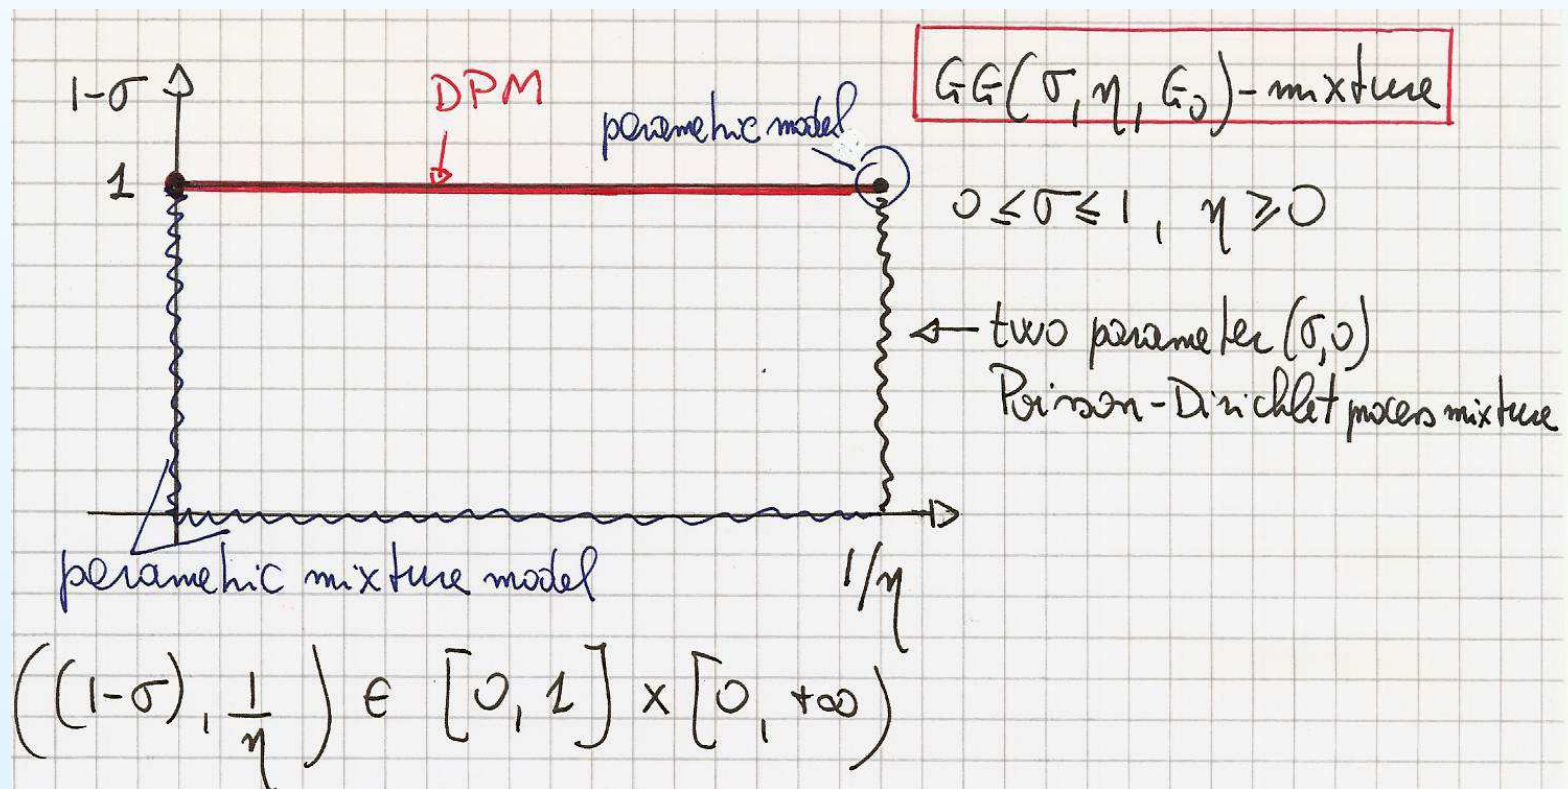 1-σ
DPM
parametric model
GG(σ, η, G₀)-mixture
1
0 ≤ σ ≤ 1, η ≥ 0
← two parameter (σ,0)
Poisson-Dirichlet process mixture
parametric mixture model
1/η
((1-σ), 1/η) ∈ [0, 1] × [0, +∞)